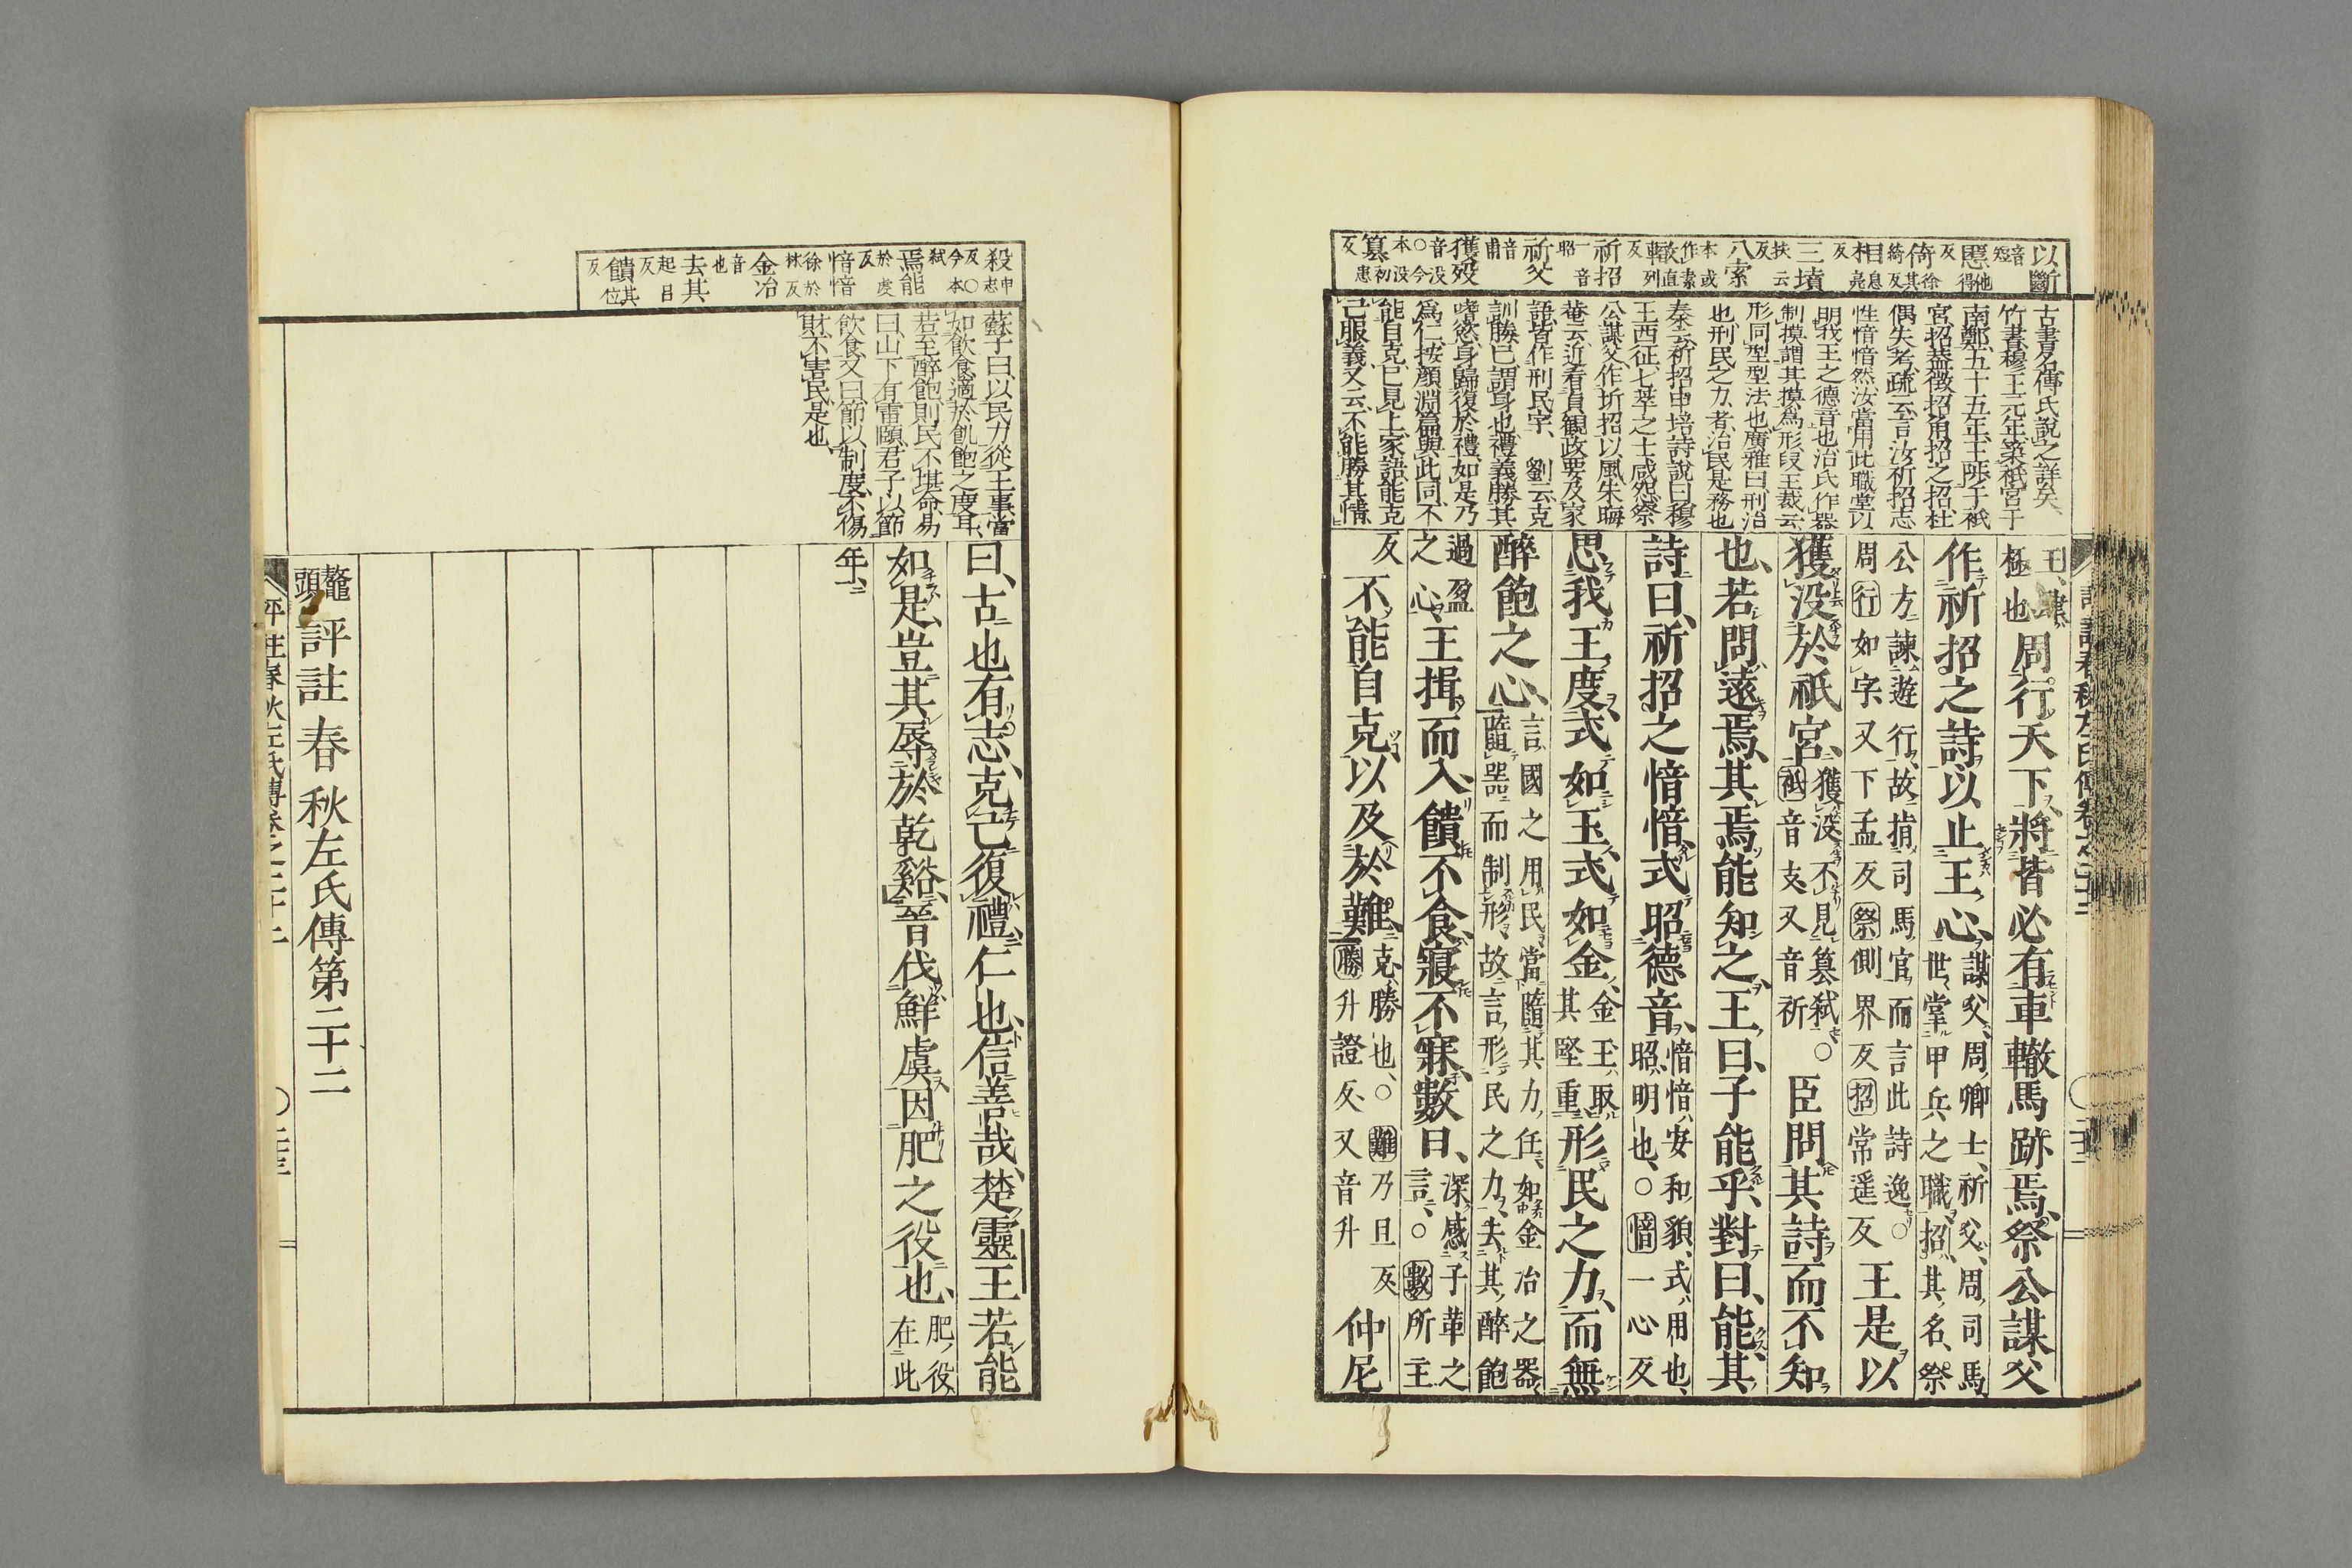 以斷
音短
慝他得
反
倚其綺徐反
相息亮
反
三墳
扶云
反
八索
本或作素
轍直列
反
祈招
一音昭
祈父
音甫
獲殁
音没今本没
簒初患
反
古書名傳氏說之詳矣
竹書穆王元年築祇宮于
南鄭五十五年王陟于祇
宮招蓋徵招角招之招杜
偶失考疏云言汝祈招志
性愔愔然汝當用此職掌以
明我王之德音也治氏作器
而制模謂其摸為形段玉裁云
形同型型法也廣雅曰刑治
也刑民之力者治民是務也
秦云祈招申培詩說曰穆
王西征七萃之士咸怨祭
公謀父作圻招以風朱晦
菴云近看貞觀政要及家
語皆作刑民字劉云克
訓勝已謂身也禮義勝其
嗜慾身歸復於禮如是乃
為仁按顏淵篇與此同不
能自克已見上家語能克
己服義又云不能勝其情
王肆極也周行天下將皆必有車轍馬跡焉祭公謀父
作祈招之詩以止王心謀父周卿士祈父周司馬世掌甲兵之職招其名祭
公方諫遊行故指司馬官而言此詩逸○周行如字又下孟反祭側界反招常遥反王是以
獲没於祇宮獲没不見簒弑○祇音支又音祈臣問其詩而不知
也若問遠焉其焉能知之王曰子能乎對曰能其
詩曰祈招之愔愔式昭德音愔愔安和貌式用也昭明也○愔一心反
思我王度式如玉式如金金玉取其堅重形民之力而無
醉飽之心言國之用民當隨其力任如金冶之器隨器而制形故言形民之力去其醉飽
過盈之心王揖而入饋不食寢不寐數日深感子革之言○數所主
反不能自克以及於難克勝也○難乃旦反勝升證反又音升仲尼
評註春秋左氏傳卷之二十二
殺申志
反○今本弑
焉能
於虔反
愔愔
徐於林反
金冶
音也
去其
起呂反
饋其位
反
蘇子曰以民力從王事當
如飲食適於飢飽之度耳
若至醉飽則民不堪命易
曰山下有雷頤君子以節
飲食又曰節以制度不傷
財不害民是也
曰古也有志克己復禮仁也信善哉楚靈王若能
如是豈其辱於乾谿晉伐鮮虞因肥之役也肥役在此
年
鼇頭評註春秋左氏傳第二十二
評註春秋左氏傳卷之二十二